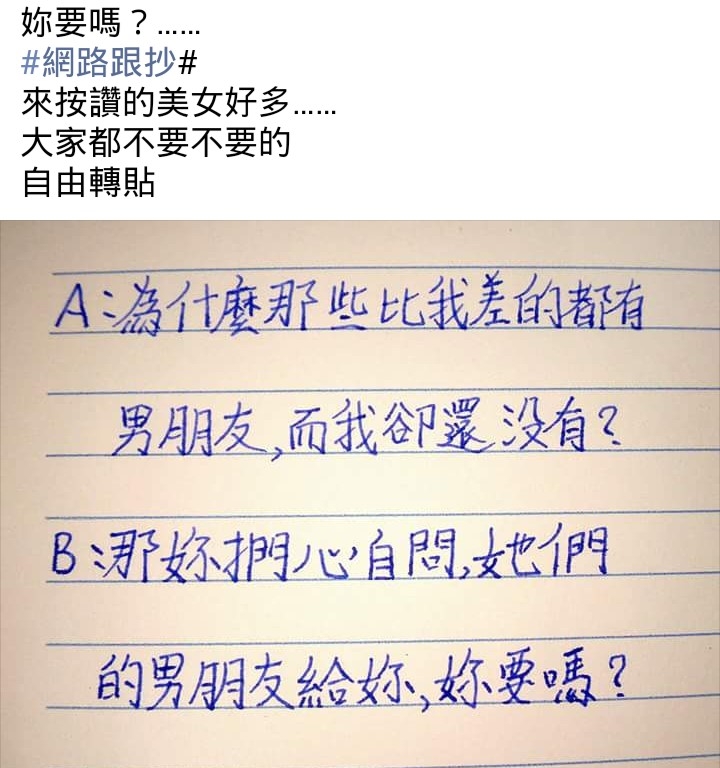 妳要嗎？……
#網路跟抄#
來按讚的美女好多……
大家都不要不要的
自由轉貼
A：為什麼那些比我差的都有
男朋友,而我卻還没有？
B：那妳捫心自問,她們
的男朋友給妳,妳要嗎？